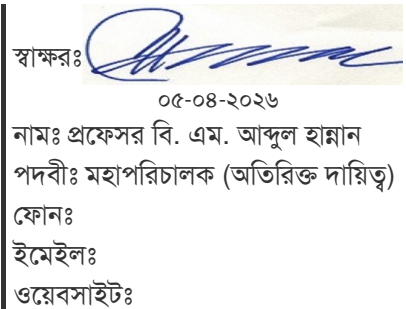 স্বাক্ষরঃ
০৫-০৪-২০২৬
নামঃ প্রফেসর বি. এম. আব্দুল হান্নান
পদবীঃ মহাপরিচালক (অতিরিক্ত দায়িত্ব)
ফোনঃ
ইমেইলঃ
ওয়েবসাইটঃ